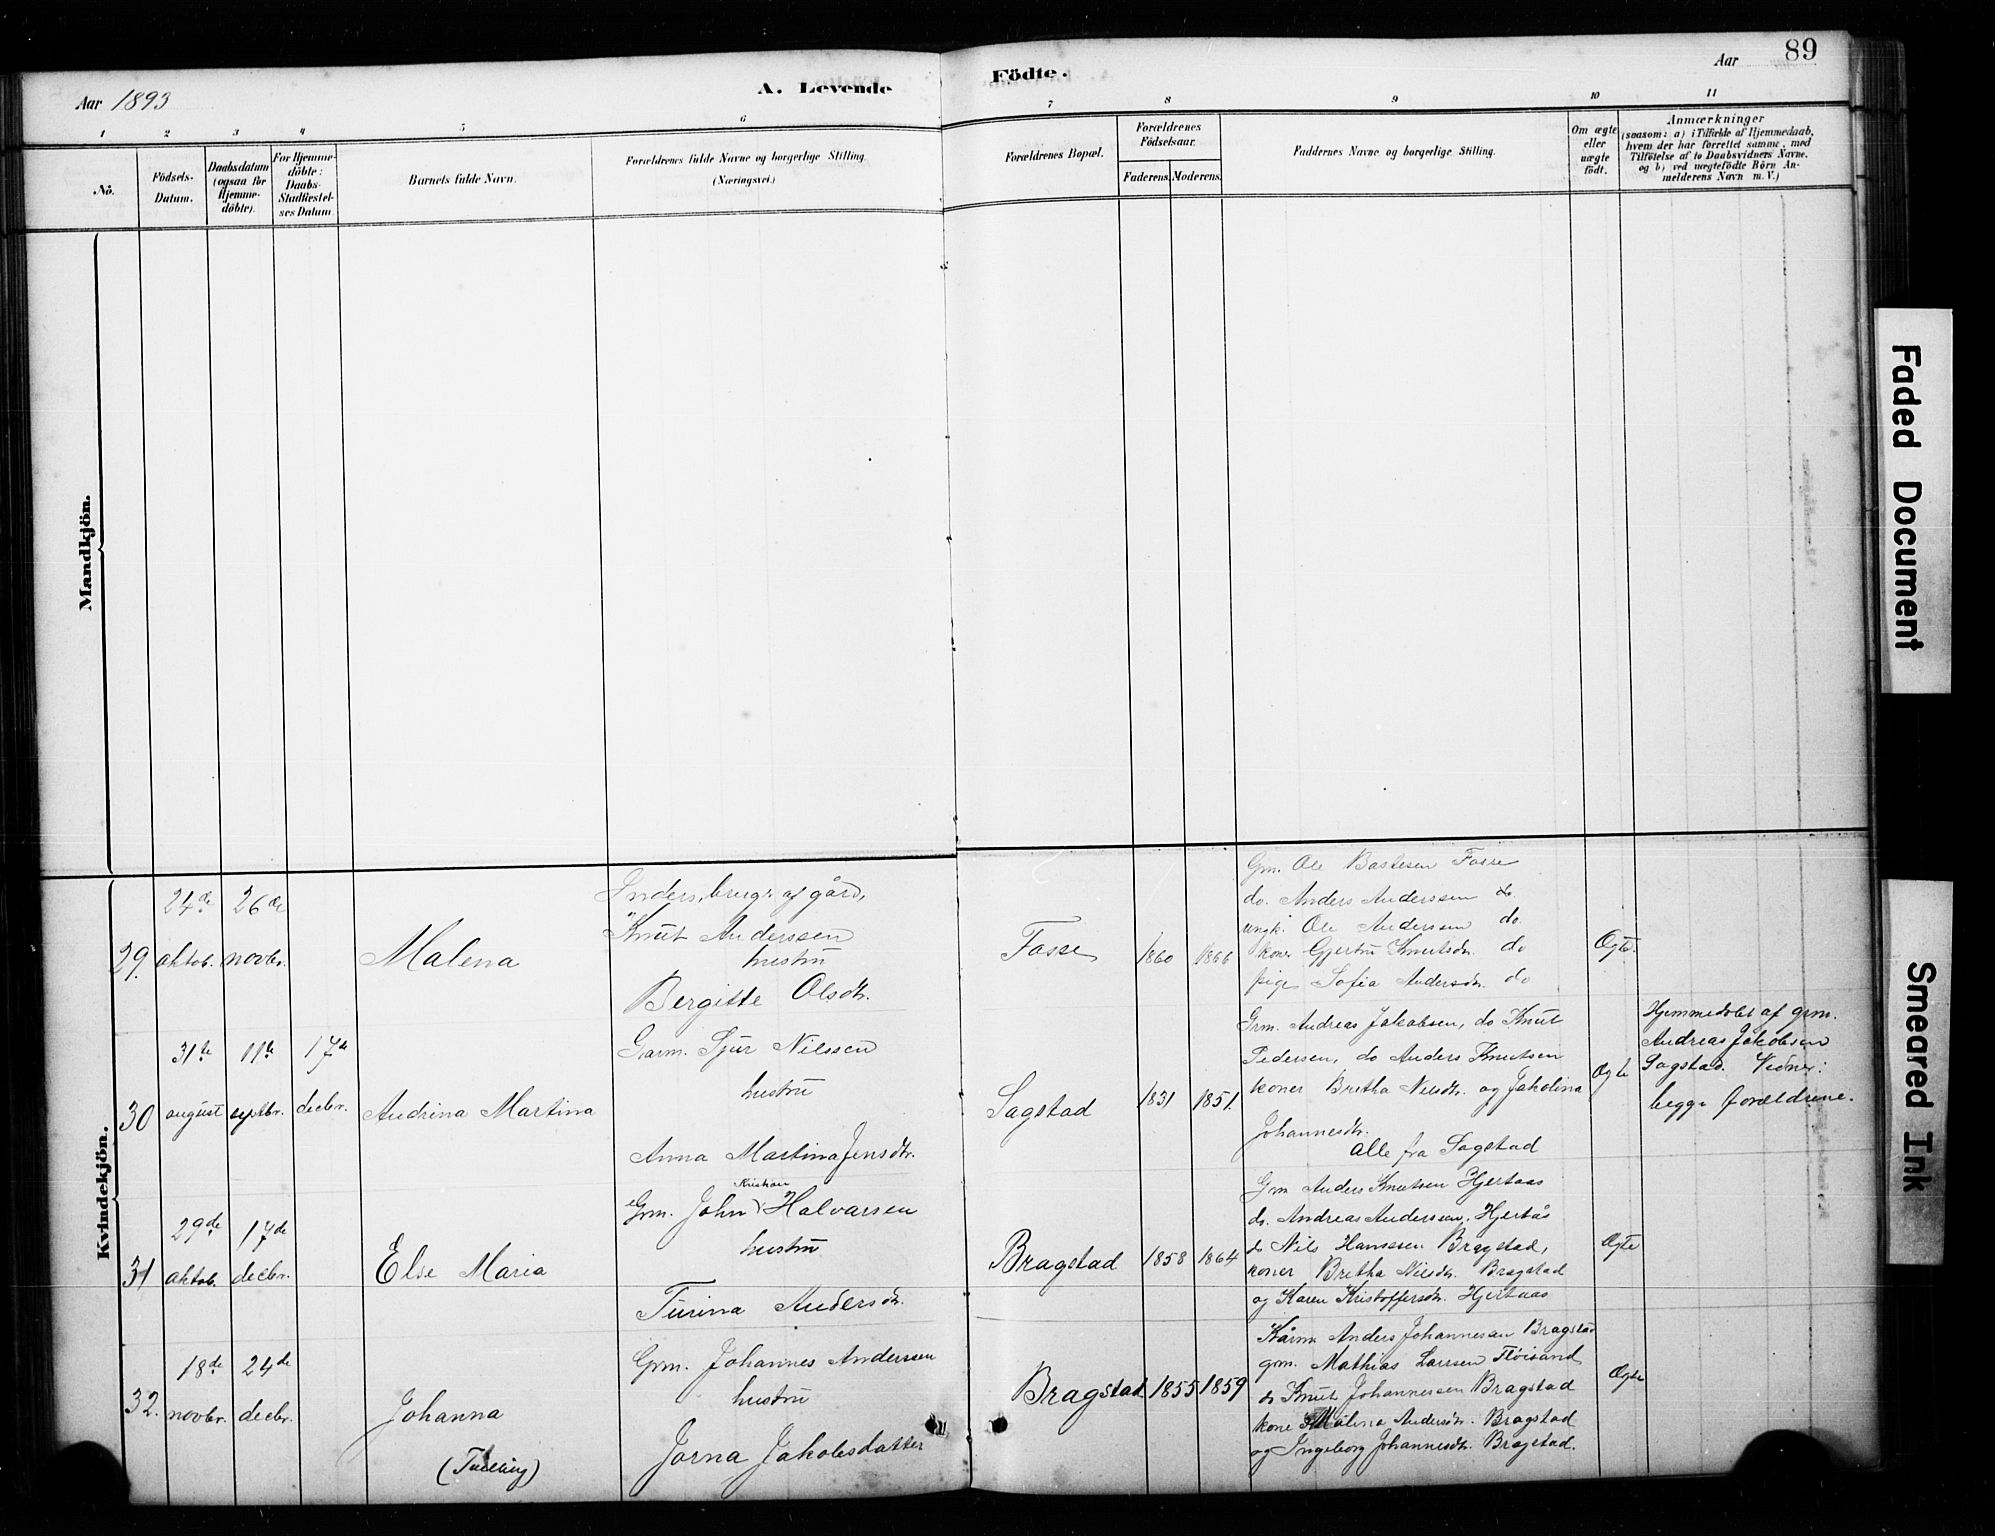 89
Aar 1893
A. Levende
Födte.
Aar
1 2 3 4 5 6 7 8 9 10 11
No.
Födsels-
Datum.
Daabsdatum
(ogsaa for
Hjemme-
döbte).
For Hjemme-
döbte:
Daabs-
Stadfæstel-
ses Datum.
Barnets fulde Navn.
Forældrenes fulde Navne og borgerlige Stilling.
(Næringsvei.)
Forældrenes Bopæl.
Forældrenes
Födselsaar.
Faderens.
Moderens.
Faddernes Navne og borgerlige Stilling.
Om ægte
eller
uægte
födt.
Anmærkninger
(saasom: a) i Tilfælde af Hjemmedaab,
hvem der har forrettet samme, med
Tilföielse af to Daabsvidners Navne.
og b) ved uægtefödte Börn An-
melderens Navn m. V.)
Mandkjön.
Kvindekjön.
29.
24de
oktob.
26de
novbr.
Malena
brugr af gård,
Knut Anderssen
hustru
Bergitte Olsdtr.
Fosse
1860
1866
Grm. Ole Bastesen Fosse
do. Anders Anderssen do
ungk. Ole Anderssen do.
kone Gjertru Knutsdtr. do
pige Sofia Andersdtr. do
Ægte.
30
31te
august
11te
septbr.
17de
decbr.
Andrina Martina
Garm. Sjur Nilssen
hustru
Anna Martina Jensdtr.
Sagstad
1831
1851.
Grm. Andreas Jakobsen, do Knut
Pedersen, do Anders Knutsen
koner Bretha Nilsdtr. og Jakolina
Johannesdtr.
Alle fra Sagstad
Ægte
Hjemmedøbt af grm.
Andreas Jakobsen
Sagstad. Vidner:
begge forældrene.
31
29de
oktob.
17de
decbr.
Else Maria
Grm. John Kristian Halvarsen
hustru
Turina Andersdtr.
Bragstad
1858
1864
Grm Anders Knutsen Hjertaas
do. Andreas Anderssen, Hjertås
do Nils Hanssen Bragstad,
koner Bretha Nilsdtr. Bragstad
og Karen Kristoffersdtr. Hjertaas
Ægte
32.
18de
novbr.
24de
decbr.
Johanna
(Tvelling)
Grm. Johannes Anderssen
hustru
Jorna Jakobsdatter
Bragstad
1855
1859
Kårm Anders Johannessen Bragstad
grm. Mathias Larssen Fløisand
do Knut Johannessen Bragstad
kone Malena Andersdtr. Bragstad
og Ingeborg Johannesdtr. Bragstad.
Ægte
Faded Document
Smeared Ink